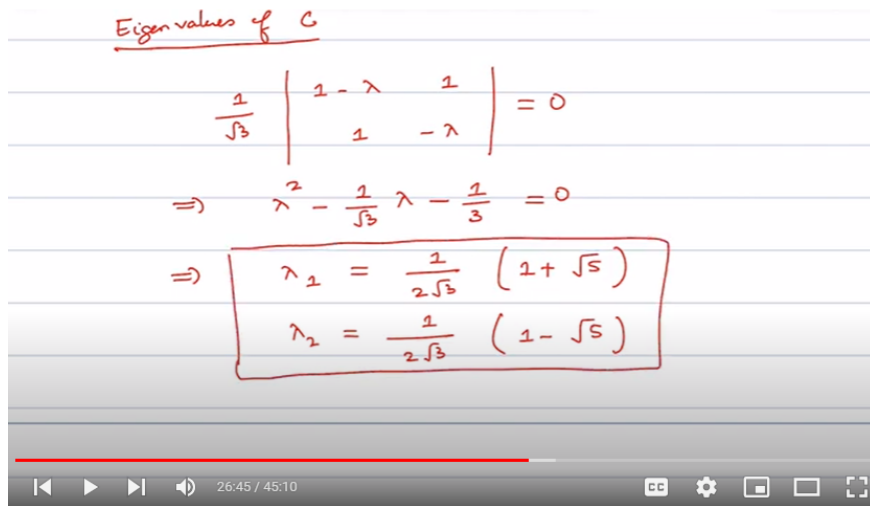 Eigenvalues of C
1/√3 | 1-λ 1 | = 0
| 1 -λ |
⇒ λ² - 1/√3 λ - 1/3 = 0
⇒ λ₁ = 1/2√3 (1+√5)
λ₂ = 1/2√3 (1-√5)
26:45 / 45:10
CC